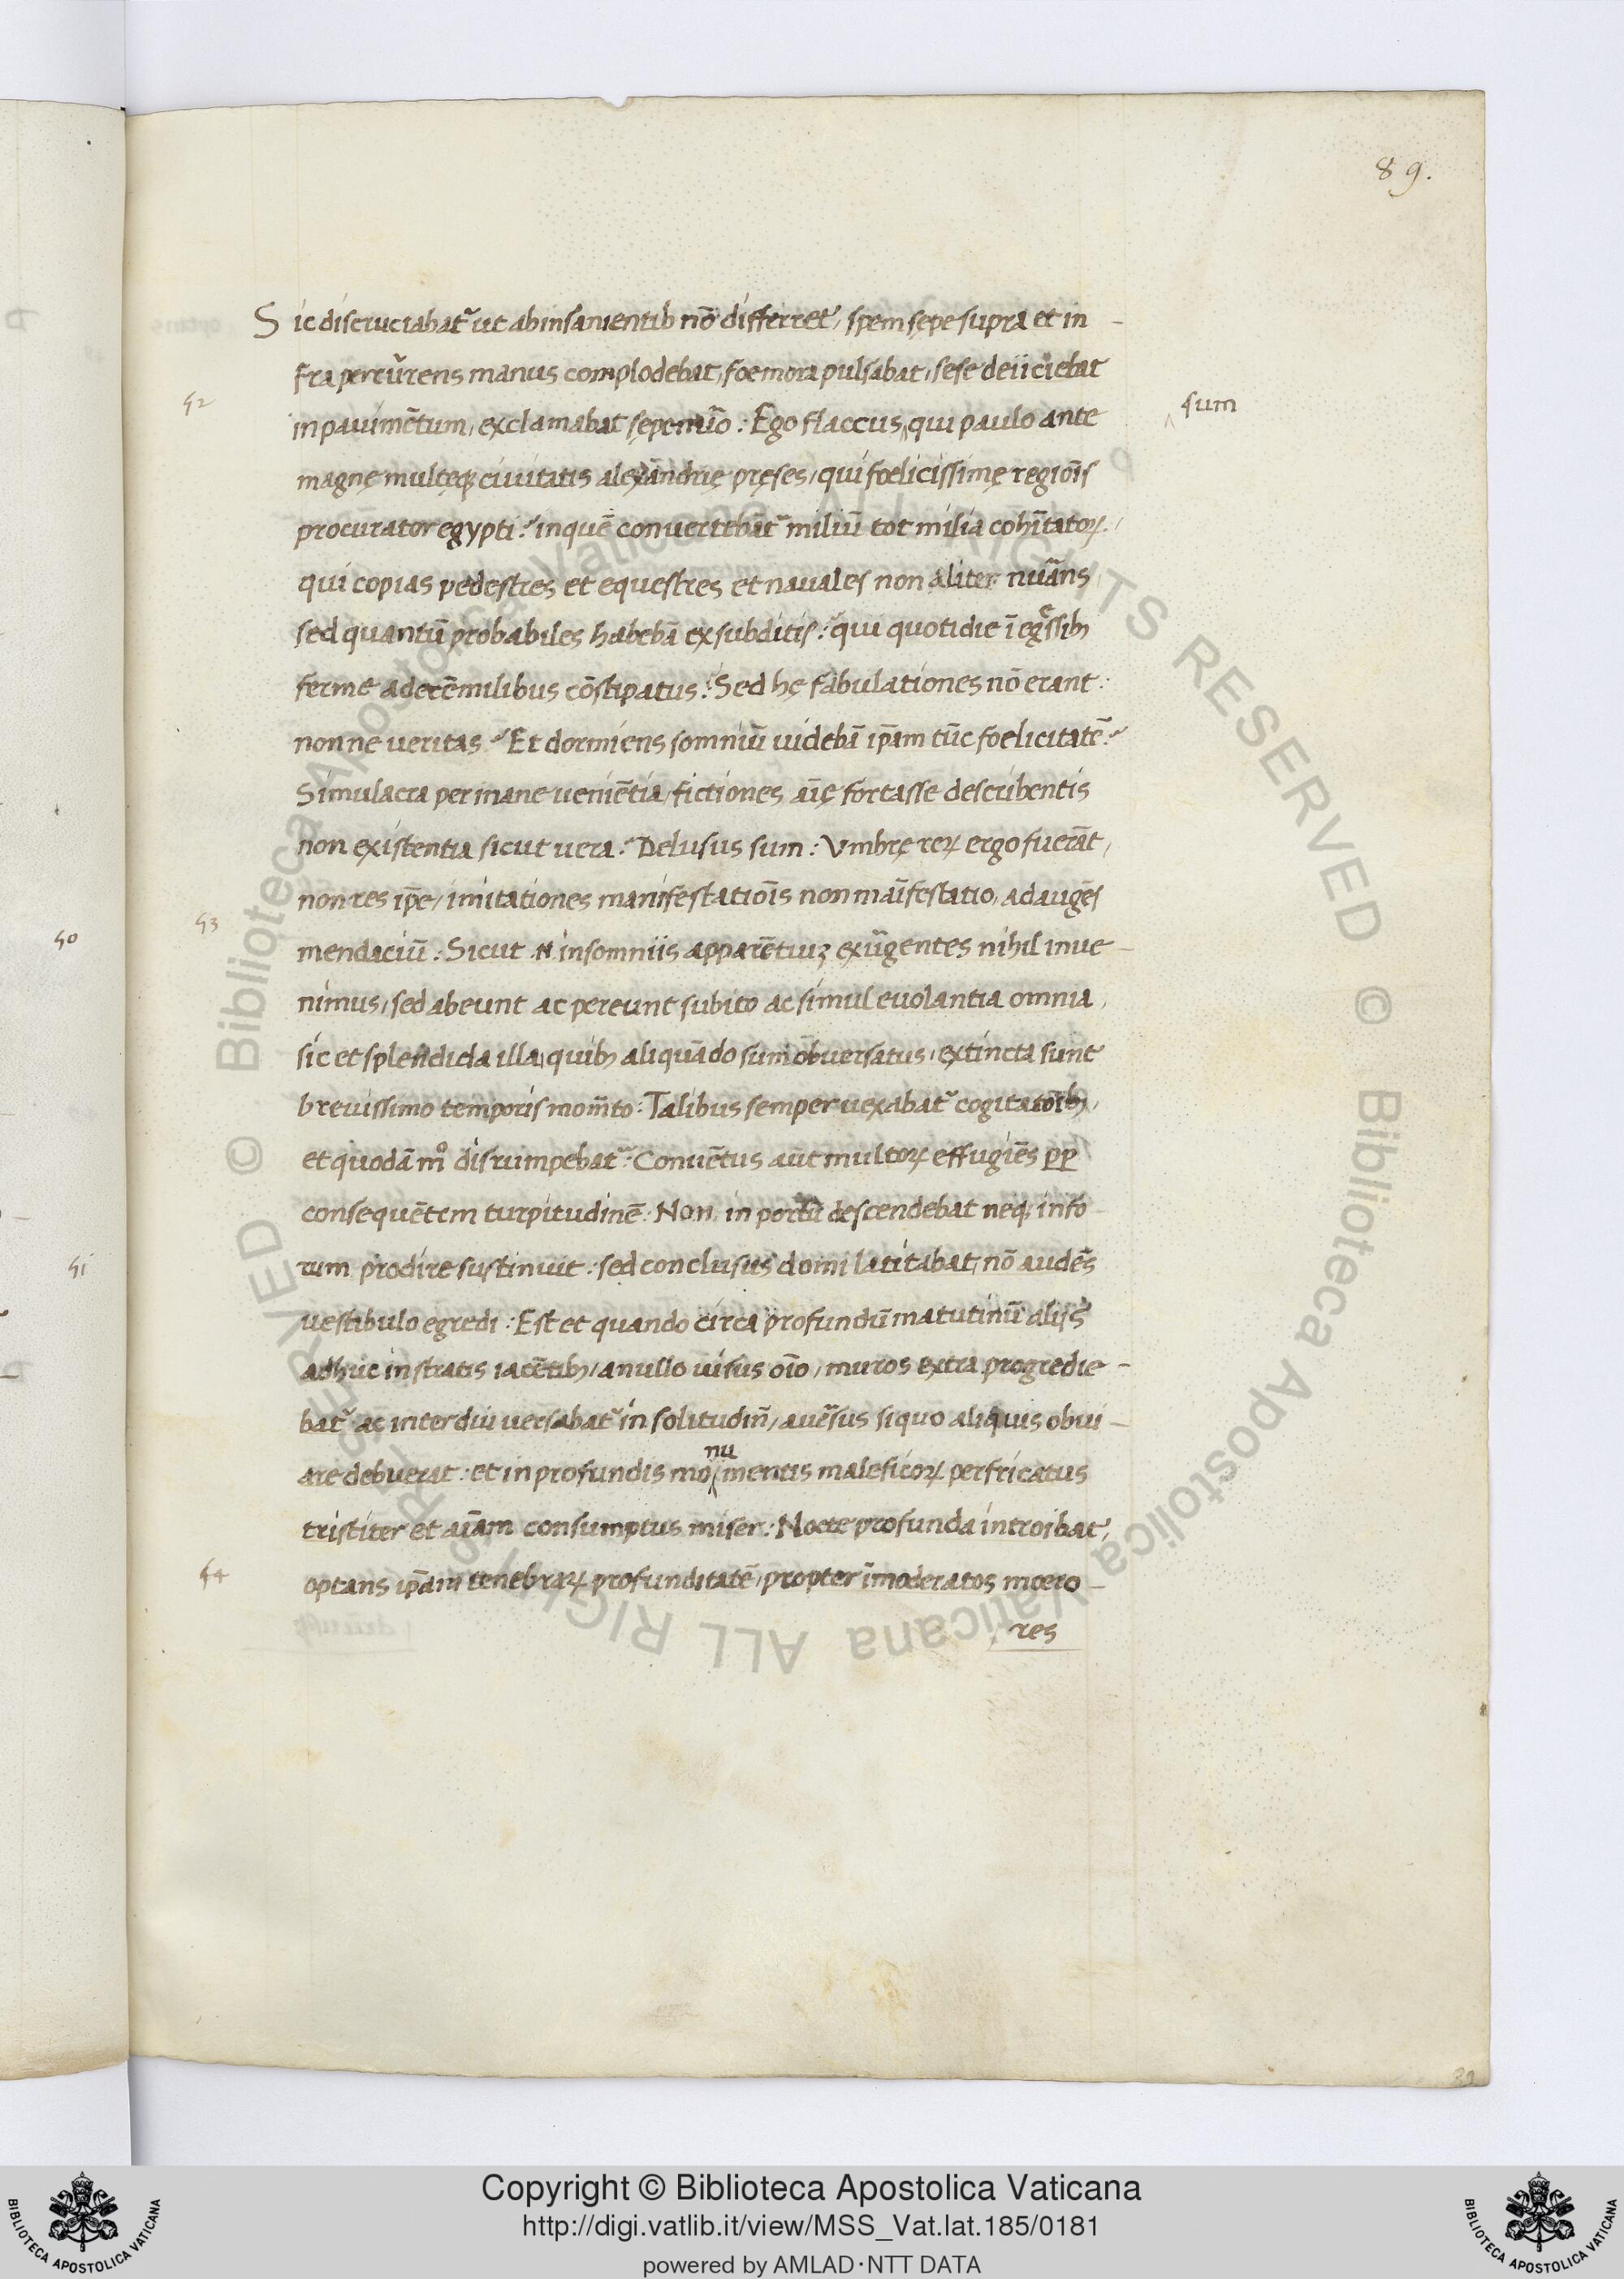 89.
Sic discruciabat᷑ ut ab insanientib nō differret, spem sępe supra et in-
fra percūrens manus complodebat, foemora pulsabat, sese deiiciebat
52
in pauimētum, exclamabat sępenūo: Ego flaccus, qui paulo ante
sum
magnę multęq; ciuitatis alexādrię pręses, qui foelicissimę regiōis
procurator egypti? in quē convertebāt᷑ miliū tot milia cohītatoꝝ,
qui copias pedestres et equestres et nauales non aliter nūans
sed quantū probabiles habebā ex subditis? qui quotidie ī egssib;
e
ferme a decē milibus cōstipatus? Sed hę fabulationes nō erant:
nonne ueritas? Et dormiens somniū uidebā ip̄am tūc foelicitatē?
Simulacra per inane ueniētia, fictiones aīę fortasse describentis
non existentia sicut uera? Delusus sum: Vmbrę reꝝ ergo fuerāt,
non res ip̄e, imitationes manifestatiōis non māifestatio, adaugēs
53
50
mendaciū: Sicut .N. insomniis apparētiuꝫ exūgentes nihil inue-
nimus, sed abeunt ac pereunt subito ac simul euolantia omnia,
sic et splendida illa, quib; aliquādo sum obuersatus, extincta sunt
breuissimo temporis mom̄to: Talibus semper uexabat᷑ cogitatōib;,
et quodā mº disrumpebat᷑: Conuētus aūt multoꝝ effugiēs ꝑꝑ
consequētem turpitudinē: Non in portū descendebat neq; in fo-
51
rum prodire sustinuit: sed conclusus domi latitabat, nō audēs
uestibulo egredi: Est et quando circa profundū matutinū aliis
adhuc in stratis iacētib;, a nullo uisus oīo, muros extra progredie-
bat᷑ ac interdiu uersabat᷑ in solitudin̄, auersus siquo aliquis obui-
are debuerat: et in profundis momentis maleficoꝝ perfricatus
nu
tristiter et aīam consumptus miser: Nocte profunda introibat,
54
optans ip̄am tenebraꝝ profunditatē, propter īmoderatos moero-
res
Copyright © Biblioteca Apostolica Vaticana
http://digi.vatlib.it/view/MSS_Vat.lat.185/0181
powered by AMLAD·NTT DATA
BIBLIOTECA APOSTOLICA VATICANA
BIBLIOTECA APOSTOLICA VATICANA
© Biblioteca Apostolica Vaticana ALL RIGHTS RESERVED
© Biblioteca Apostolica Vaticana ALL RIGHTS RESERVED